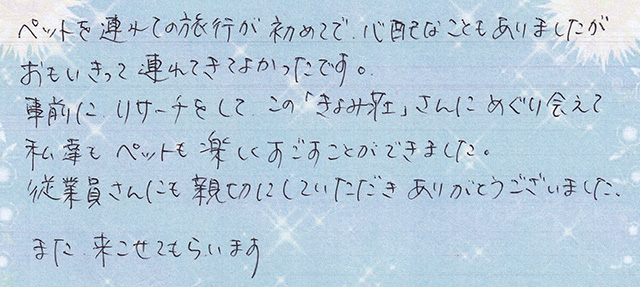 ペットを連れての旅行が初めてで、心配なこともありましたが
おもいきって連れてきてよかったです。
事前にリサーチをして、この「きよみ荘」さんにめぐり会えて
私達もペットも楽しくすごすことができました。
従業員さんにも親切にしていただきありがとうございました。
また、来こせてもらいます